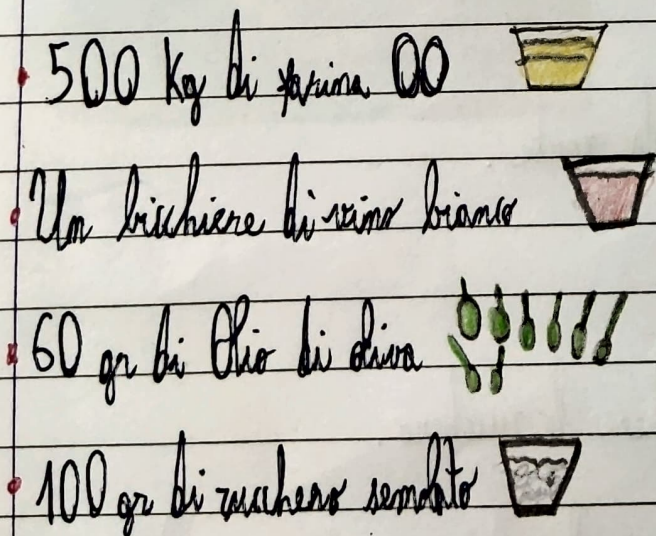 500 Kg di farina 00
Un bicchiere di vino bianco
60 gr di Olio di oliva
100 gr di zucchero semolato